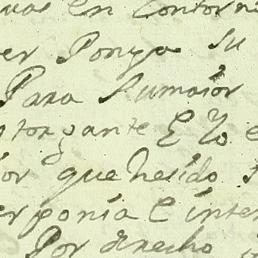 en Contorn
er Ponga su
Para sumaior
torgante E Yo e
or que hesido
erponia e inter
Por derecho